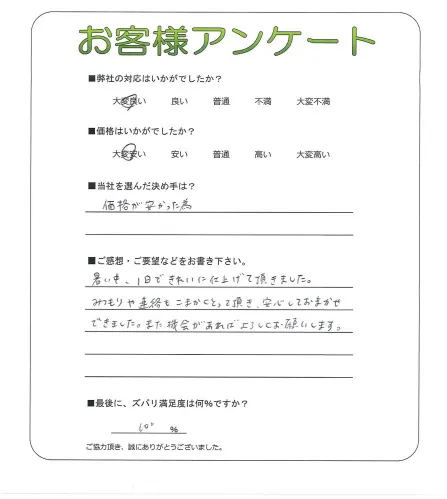 お客様アンケート
■弊社の対応はいかがでしたか？
大変良い 良い 普通 不満 大変不満
■価格はいかがでしたか？
大変安い 安い 普通 高い 大変高い
■当社を選んだ決め手は？
価格が安かった為
■ご感想・ご要望などをお書き下さい。
暑い中、1日できれいに仕上げて頂きました。
みつもりや連絡もこまかくとって頂き、安心しておまかせ
できました。また機会があればよろしくお願いします。
■最後に、ズバリ満足度は何％ですか？
100 ％
ご協力頂き、誠にありがとうございました。